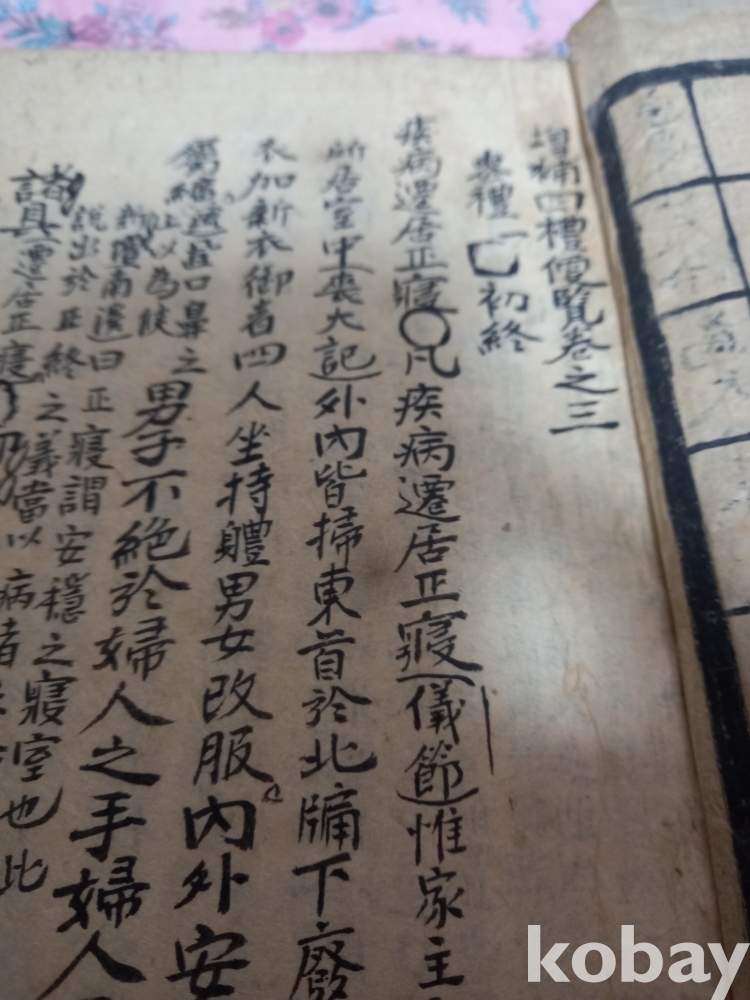 增補四禮便覽卷之三
喪禮一 初終
疾病遷居正寢〇凡疾病遷居正寢(儀節)惟家主
所居室中(喪大記)外內皆掃東首於北牖下廢
衣加新衣御者四人坐持體男女改服內外安
男子不絕於婦人之手婦人
屬纊
口鼻之
上以為候
新
南溪曰正寢謂安穩之寢室也此
說出於正終之義當以病者
諸具(遷居正寢)
kobay